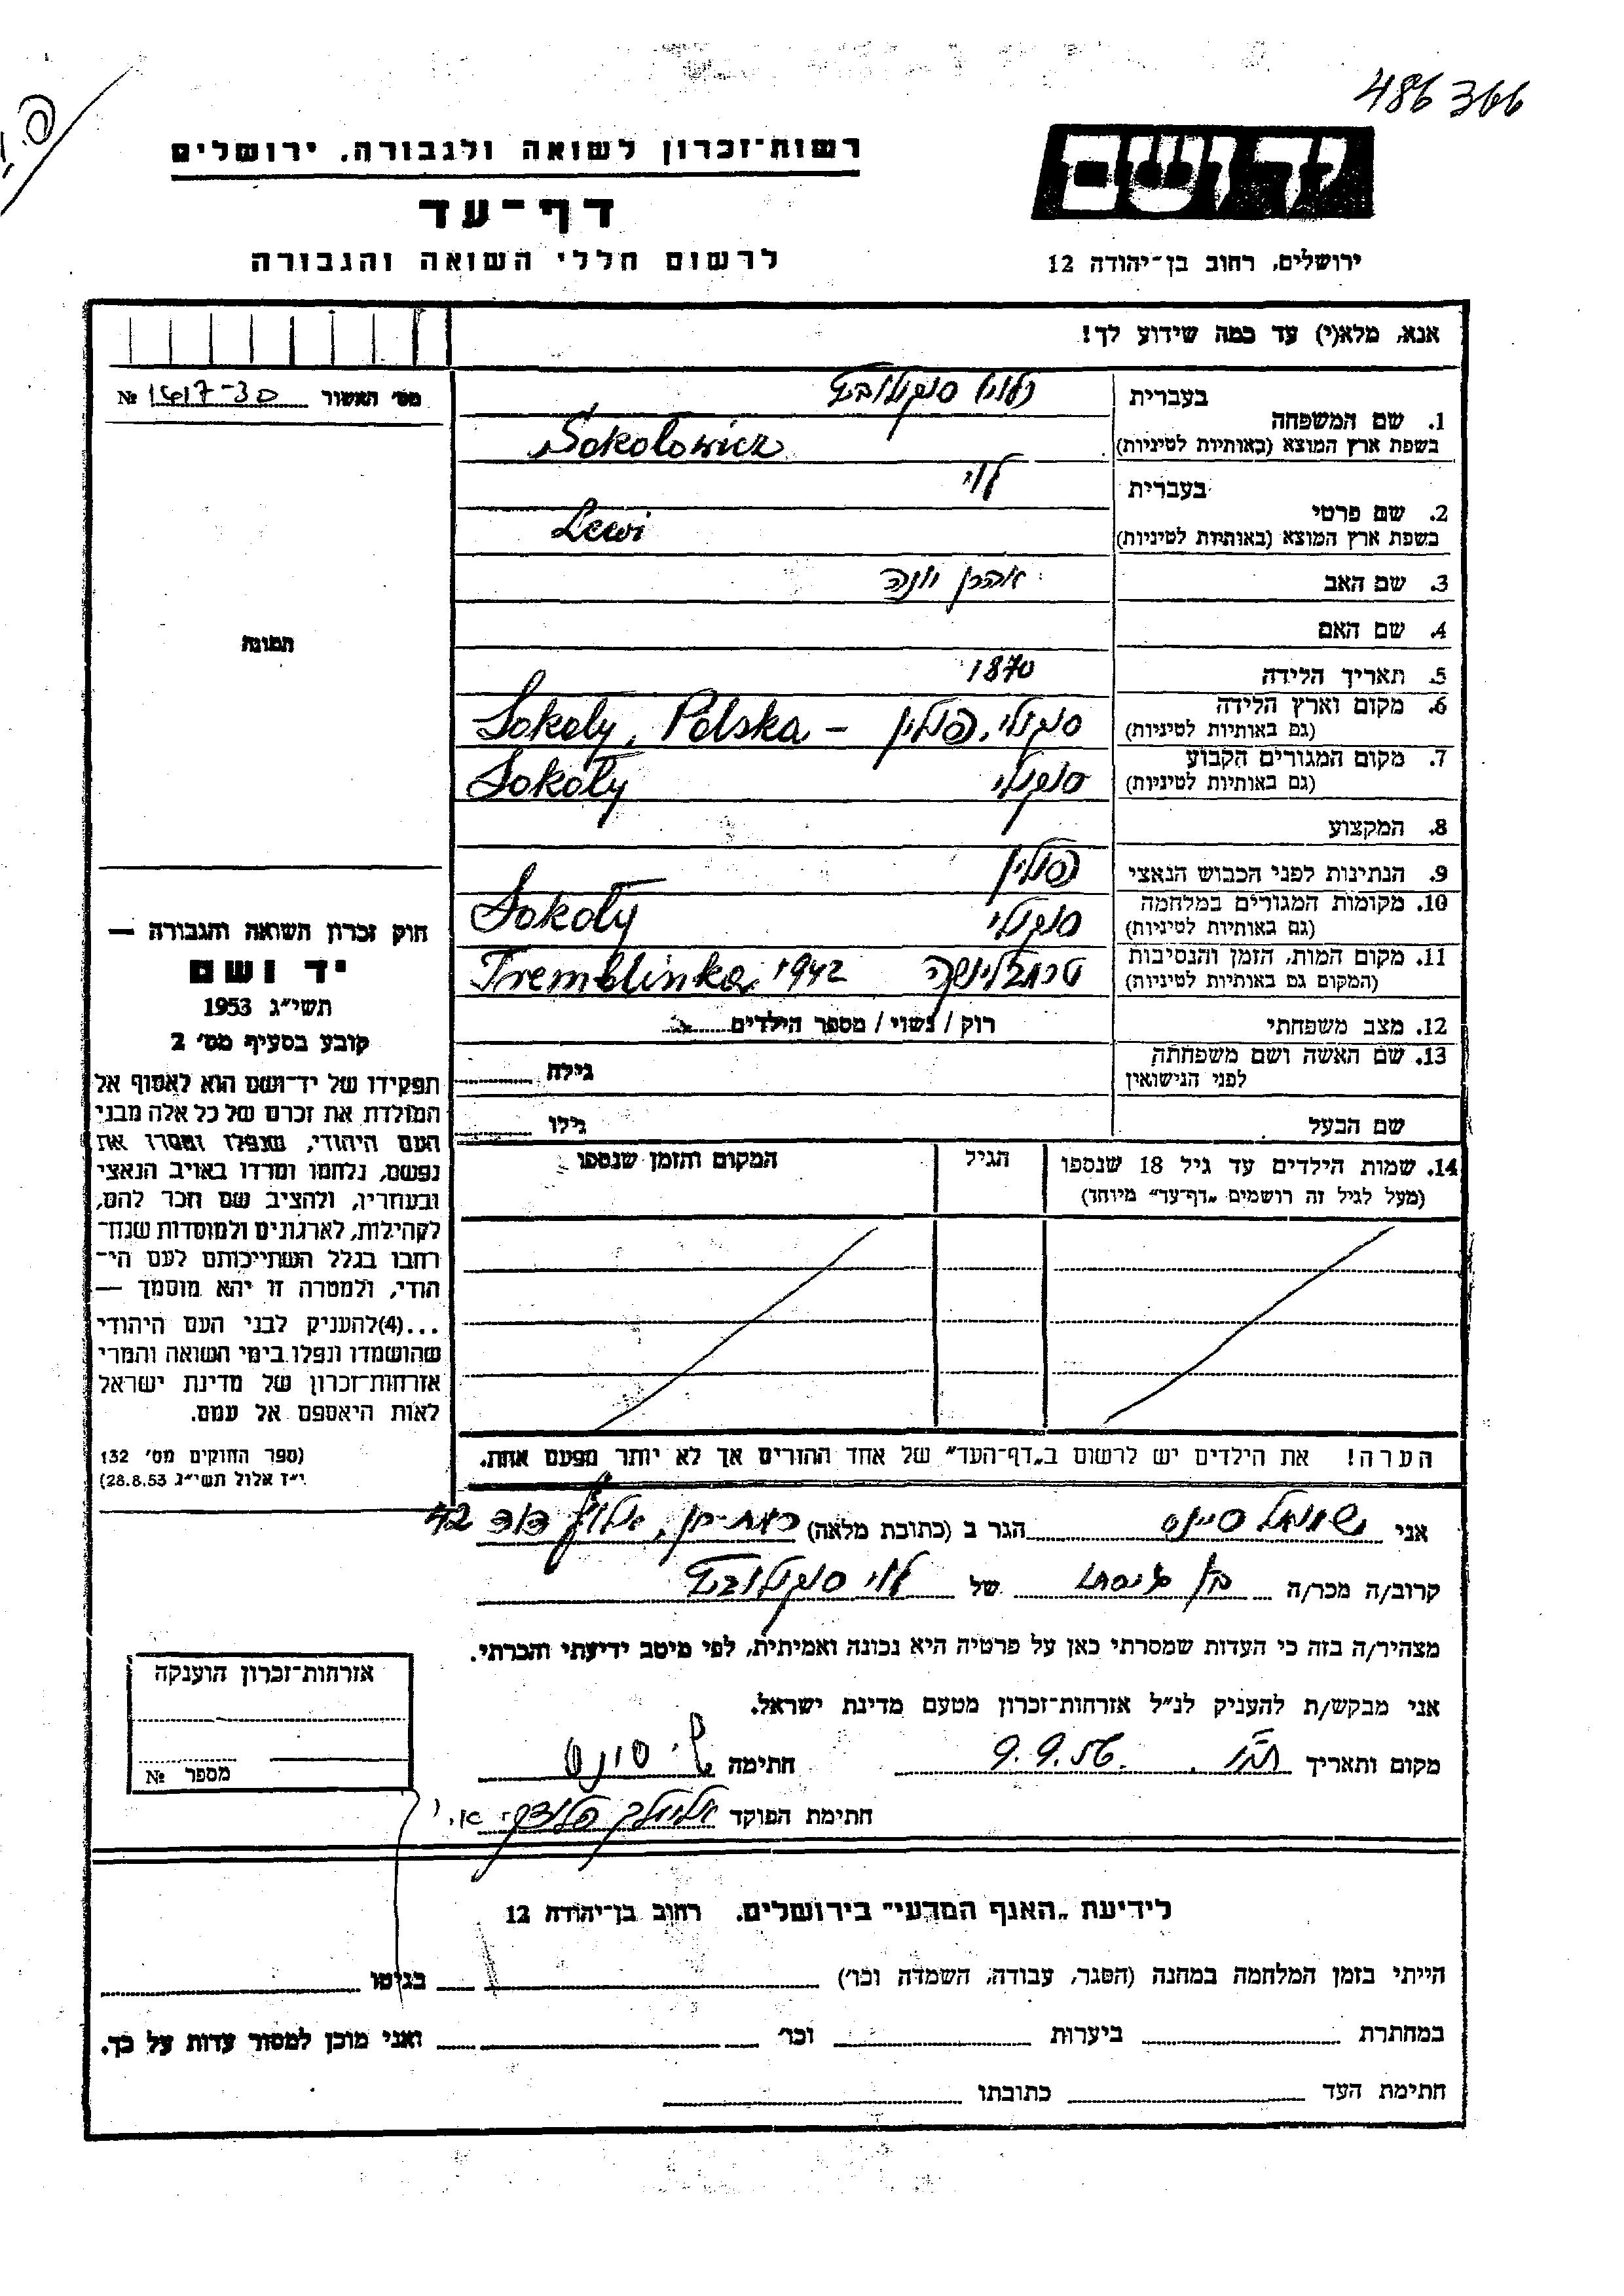 486366
יד ושם
רשות־זכרון לשואה ולגבורה, ירושלים
דף־עד
לרשום חללי השואה והגבורה
ירושלים, רחוב בן־יהודה 12
אנא, מלא(י) עד כמה שידוע לך!
מס׳ האשור 1617-30 №
1. שם המשפחה
בעברית סוקולוביץ
בשפת ארץ המוצא (באותיות לטיניות) Sokolowicz
2. שם פרטי
בעברית לוי
בשפת ארץ המוצא (באותיות לטיניות) Lewi
3. שם האב אהרן יונה
4. שם האם
5. תאריך הלידה 1870
6. מקום וארץ הלידה סוקולי, פולין – Sokoly, Polska
(גם באותיות לטיניות)
7. מקום המגורים הקבוע סוקולי Sokoły
(גם באותיות לטיניות)
8. המקצוע
9. הנתינות לפני הכבוש הנאצי פולין
10. מקומות המגורים במלחמה סוקולי Sokoły
(גם באותיות לטיניות)
11. מקום המות, הזמן והנסיבות טרמבלינקה Tremblinka, 1942
(המקום גם באותיות לטיניות)
12. מצב משפחתי רוק / נשוי / מספר הילדים
13. שם האשה ושם משפחתה גילה
לפני הנישואין
שם הבעל גילו
14. שמות הילדים עד גיל 18 שנספו הגיל המקום והזמן שנספו
(מעל לגיל זה רושמים „דף־עד״ מיוחד)
הערה! את הילדים יש לרשום ב„דף־העד״ של אחד ההורים אך לא יותר מפעם אחת.
התמונה
חוק זכרון השואה והגבורה —
יד ושם
תשי״ג 1953
קובע בסעיף מס׳ 2
תפקידו של יד־ושם הוא לאסוף אל
המולדת את זכרם של כל אלה מבני
העם היהודי, שנפלו ומסרו את
נפשם, נלחמו ומרדו באויב הנאצי
ובעוזריו, ולהציב שם וזכר להם,
לקהילות, לארגונים ולמוסדות שנח־
רבו בגלל השתייכותם לעם הי־
הודי, ולמטרה זו יהא מוסמך —
...(4)להעניק לבני העם היהודי
שהושמדו ונפלו בימי השואה והמרי
אזרחות־זכרון של מדינת ישראל
לאות היאספם אל עמם.
(ספר החוקים מס׳ 132
י״ז אלול תשי״ג 28.8.53)
אני שמואל הגר ב (כתובת מלאה) 42
קרוב/ה מכר/ה בן של לוי סוקולוביץ
מצהיר/ה בזה כי העדות שמסרתי כאן על פרטיה היא נכונה ואמיתית, לפי מיטב ידיעתי והכרתי.
אני מבקש/ת להעניק לנ״ל אזרחות־זכרון מטעם מדינת ישראל.
מקום ותאריך 9.9.56 חתימה
חתימת הפוקד
אזרחות־זכרון הוענקה
מספר №
לידיעת „האגף המדעי״ בירושלים, רחוב בן־יהודה 12
הייתי בזמן המלחמה במחנה (הסגר, עבודה, השמדה וכו׳) בגיטו
במחתרת ביערות וכו׳ ואני מוכן למסור עדות על כך.
חתימת העד כתובתו